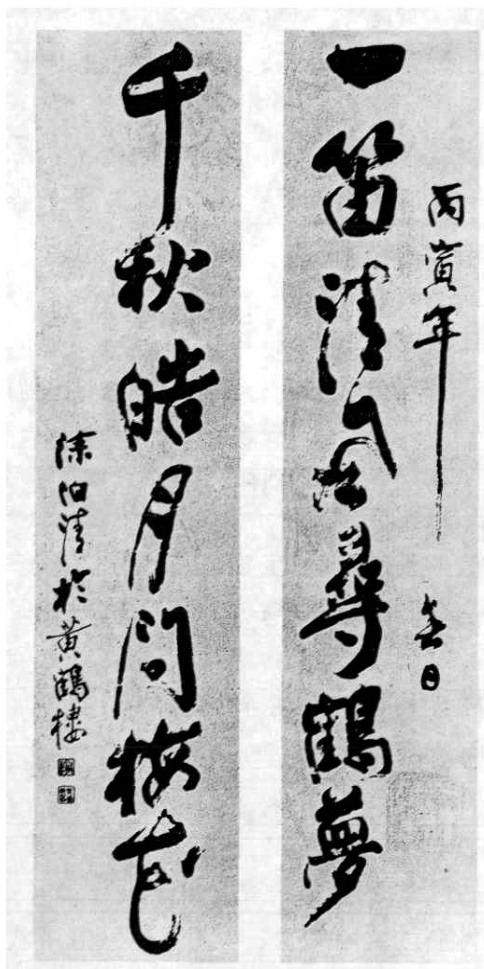 丙寅年 春日
一笛清風尋鶴夢
千秋皓月問梅花
涂泊清於黄鶴樓